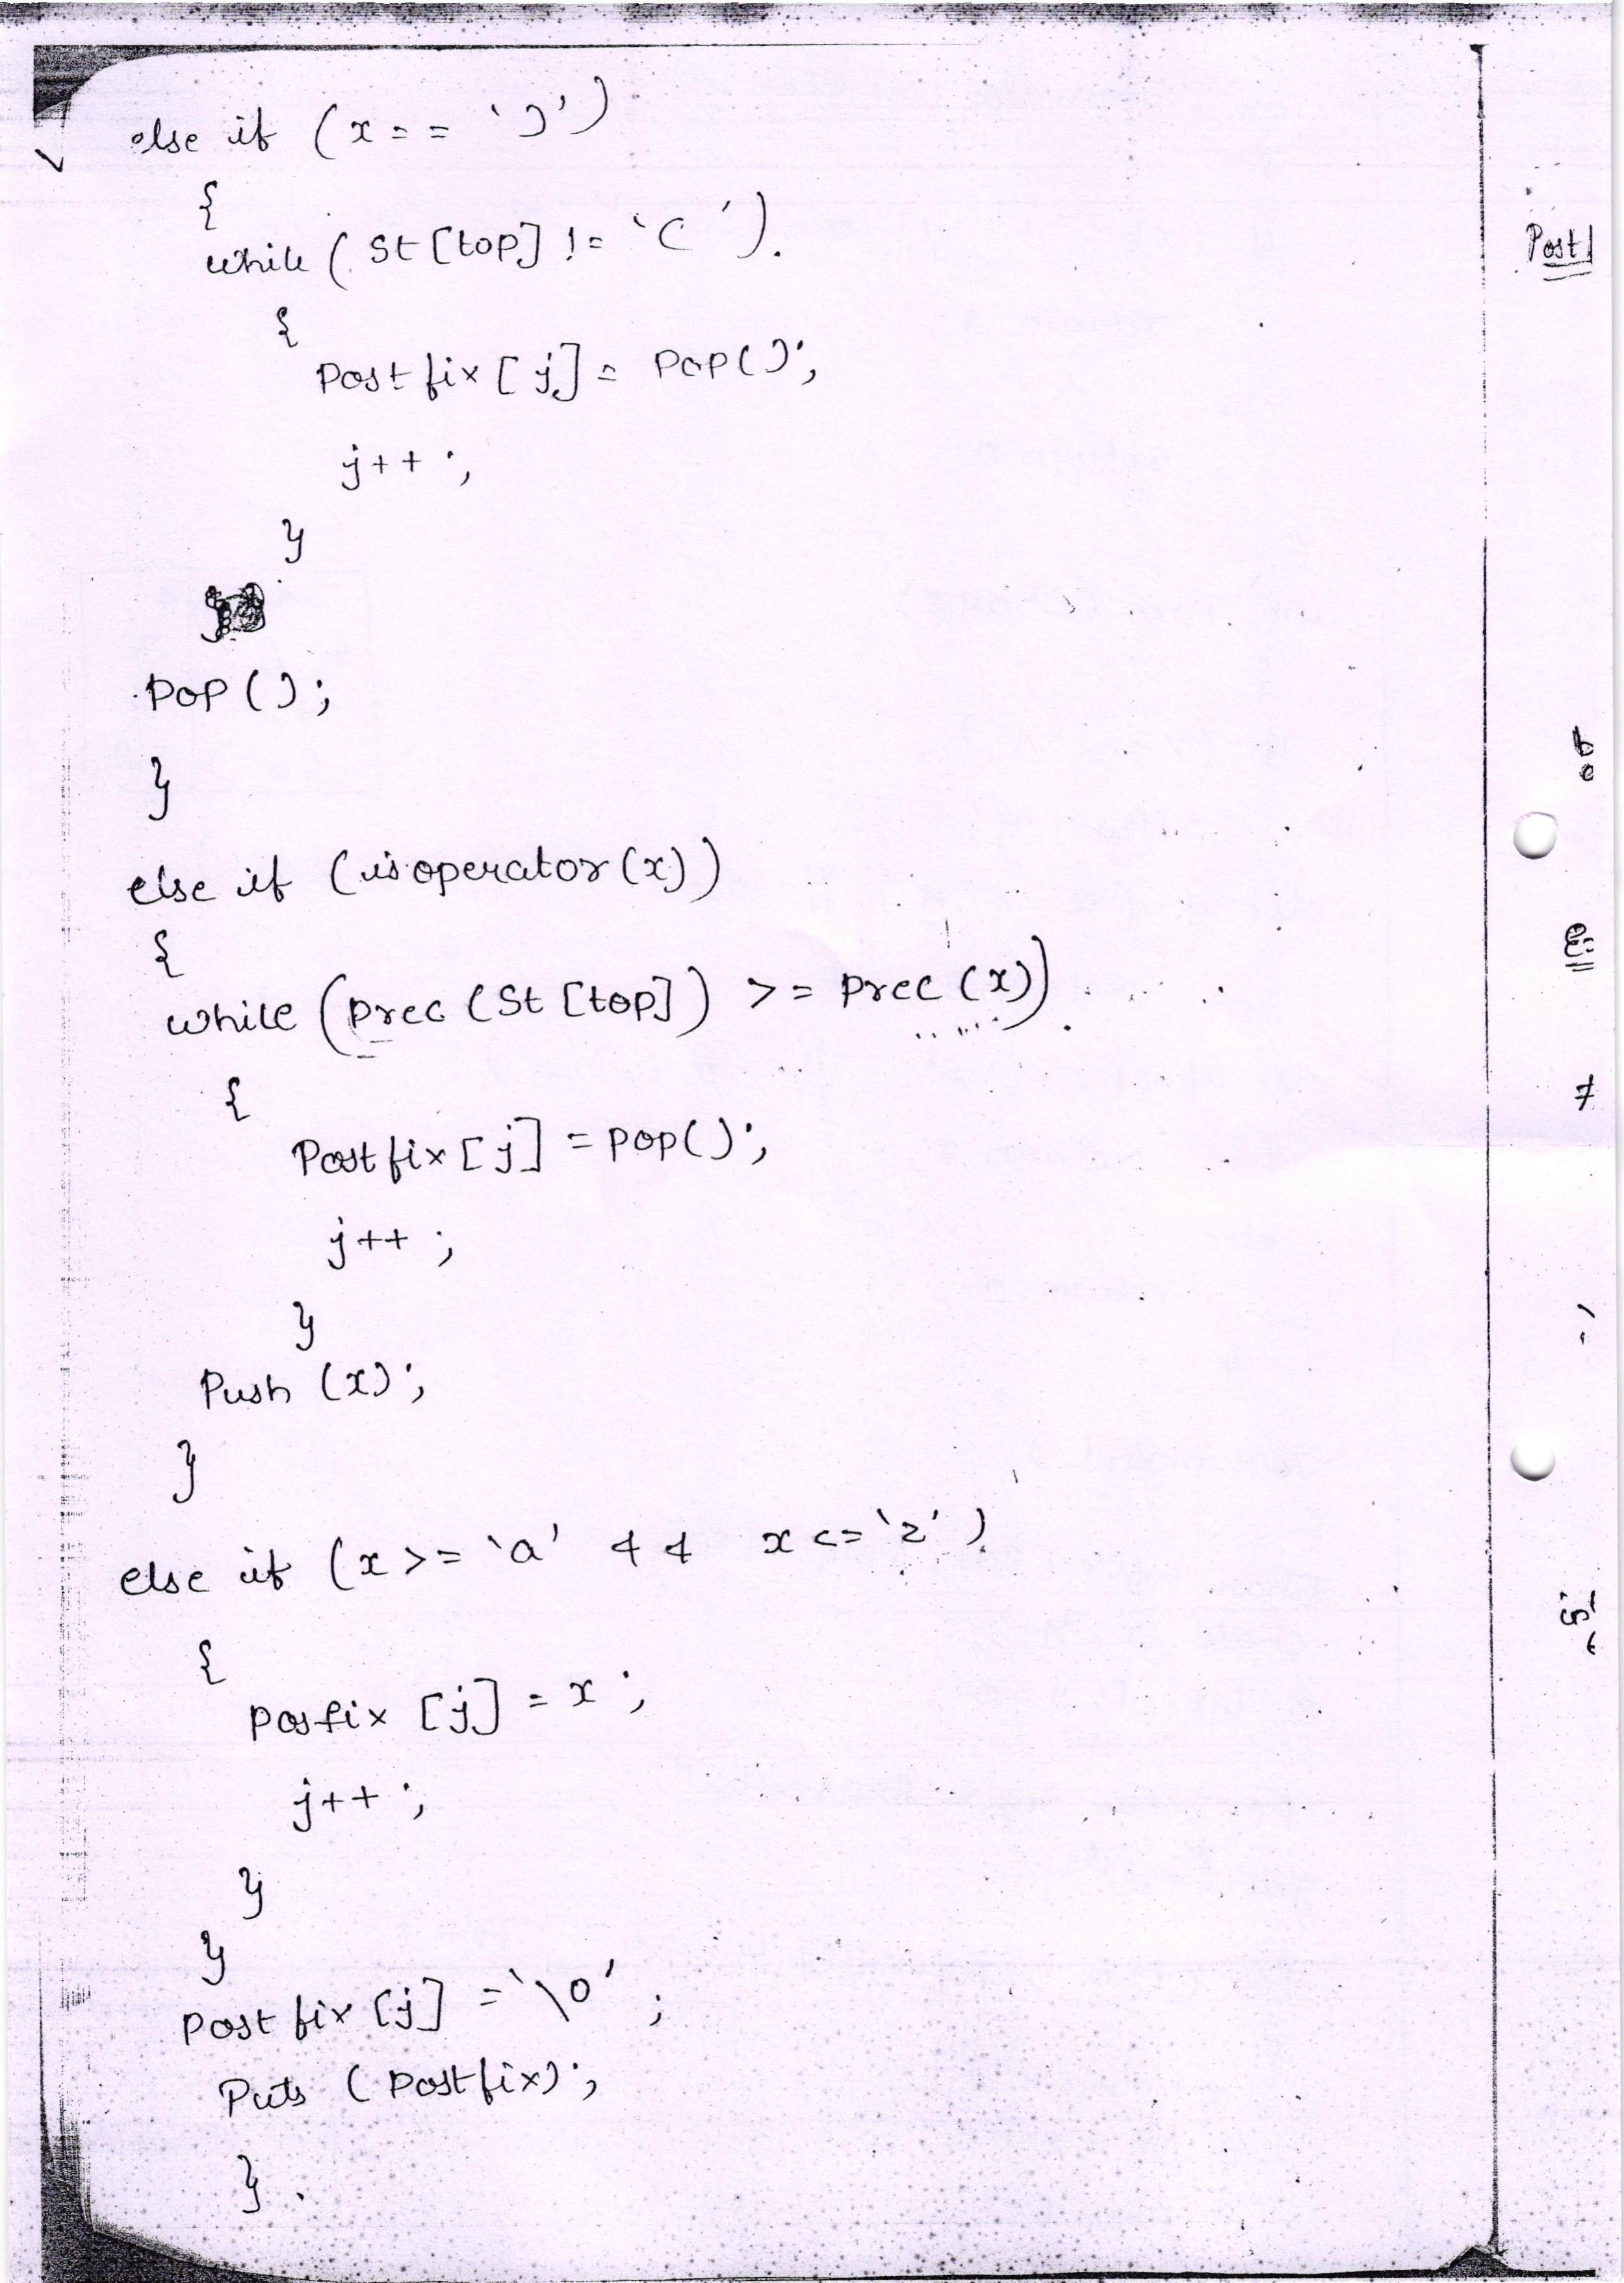 else if (x == ')')
{
while ( St [top] != '(' ).
{
Postfix [ j ] = Pop();
j++ ;
}
Pop ();
}
else if (isoperator (x))
{
while (Prec (St [top]) >= Prec (x)).
{
Postfix [ j ] = pop();
j++ ;
}
Push (x);
}
else if (x >= 'a' && x <= 'z' )
{
Posfix [j] = x ;
j++ ;
}
}
Postfix [j] = '\0' ;
Puts ( Postfix);
} .
Post